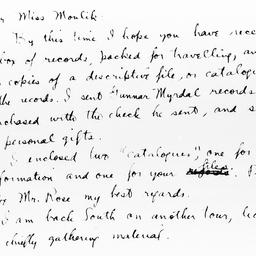 r Miss Moulik:
By this time I hope you have rece
ior of records, packed for travelling, an
copies of a descriptive file, or catalogu
the records. I sent Gunnar Myrdal records
rchased with the check he sent, and s
personal gifts.
I enclosed two "catalogues" one for
formation and one for your files
Mr. Rose my best regards.
am back South on another tour, 
chiefly gathering material.